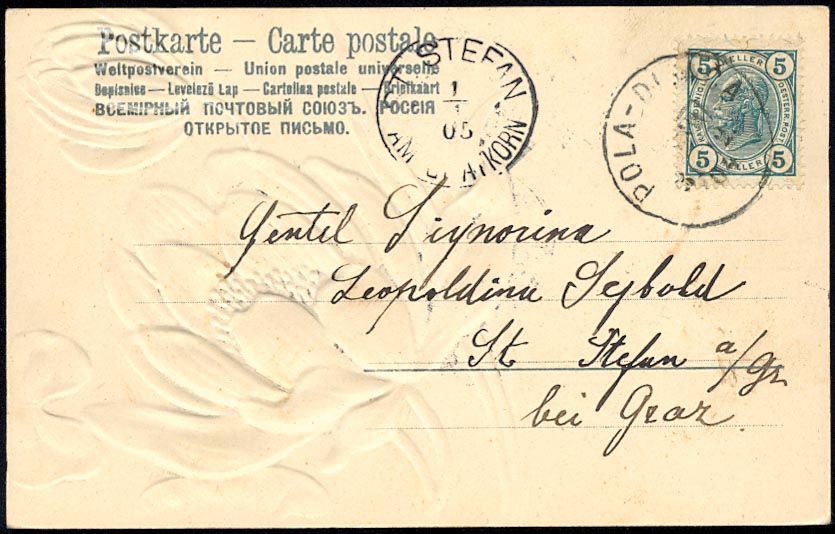 Postkarte — Carte postale
Weltpostverein — Union postale universelle
Dopisnice — Levelező Lap — Cartolina postale — Briefkaart
ВСЕМІРНЫЙ ПОЧТОВЫЙ СОЮЗЪ. РОССІЯ
ОТКРЫТОЕ ПИСЬМО.
ST. STEFAN
1
I
05
AM GRATKORN
POLA-DI
5 HELLER 5
OESTERR. POST
5 HELLER 5
Gentel Signorina
Leopoldina Seybold
St Stefan a/Gr
bei Graz.